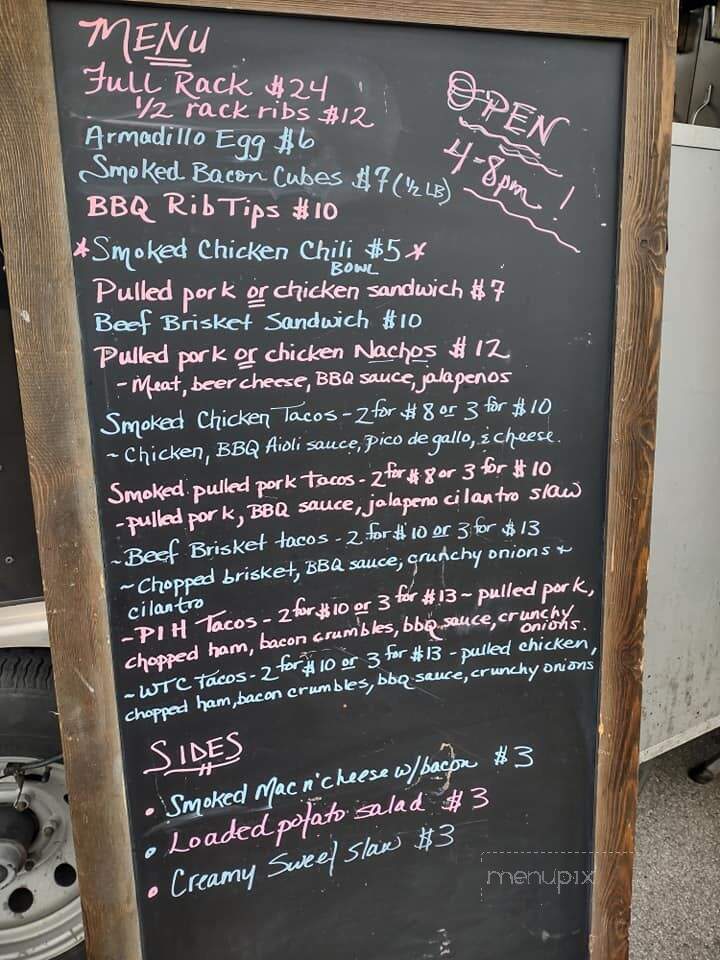 MENU
Full Rack $24
1/2 rack ribs $12
OPEN
4-8pm!
Armadillo Egg $6
Smoked Bacon Cubes $7 (1/2 LB)
BBQ Rib Tips $10
*Smoked Chicken Chili $5*
BOWL
Pulled pork or chicken sandwich $7
Beef Brisket Sandwich $10
Pulled pork or chicken Nachos $12
- Meat, beer cheese, BBQ sauce, jalapenos
Smoked Chicken Tacos - 2 for $8 or 3 for $10
~ Chicken, BBQ Aioli sauce, pico de gallo, & cheese.
Smoked pulled pork tacos - 2 for $8 or 3 for $10
-pulled pork, BBQ sauce, jalapeno cilantro slaw
~Beef Brisket tacos - 2 for $10 or 3 for $13
~Chopped brisket, BBQ sauce, crunchy onions +
cilantro
~PIH Tacos - 2 for $10 or 3 for $13 ~ pulled pork,
chopped ham, bacon crumbles, bbq sauce, crunchy
onions.
~WTC Tacos - 2 for $10 or 3 for $13 - pulled chicken,
chopped ham, bacon crumbles, bbq sauce, crunchy onions
SIDES
• Smoked Mac n' cheese w/bacon $3
• Loaded potato salad $3
• Creamy Sweet Slaw $3
menupix